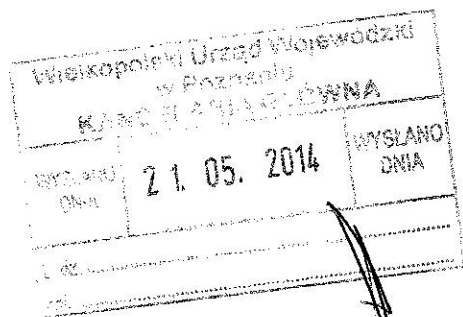 Wielkopolski Urząd Wojewódzki
w Poznaniu
KANCELARIA GŁÓWNA
WYSŁANO
DNIA
21. 05. 2014
WYSŁANO
DNIA
L. dz.